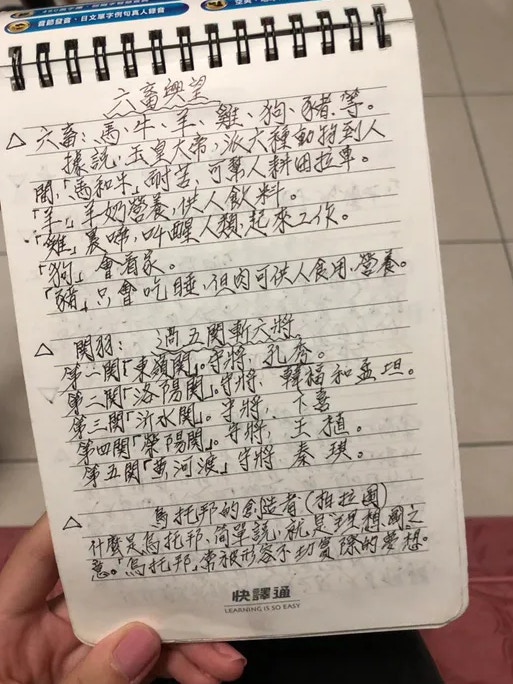 首節發音、日文單字例句真人錄音
六畜興望
△ 六畜：馬、牛、羊、雞、狗、豬、等。
據說，玉皇大帝，派六種動物到人
間，「馬和牛」耐苦，可幫人耕田拉車。
「羊」，羊奶營養，供人飲料。
「雞」晨啼，叫醒人類，起來工作。
「狗」會看家。
「豬」只會吃睡，但肉可供人食用，營養。
△ 関羽： 過五関斬六將
第一関「東嶺関」。守將，孔秀。
第二関「洛陽関」。守將，韓福和孟坦。
第三関「沂水関」。守將，卞喜
第四関「榮陽関」。守將，王植。
第五関「黃河渡」守將 秦琪。
△ 烏托邦的創造者（柏拉圖）
什麼是烏托邦、简單說，就是「理想國之
意。「烏托邦」常被形容不切實際的夢想。
快譯通
LEARNING IS SO EASY